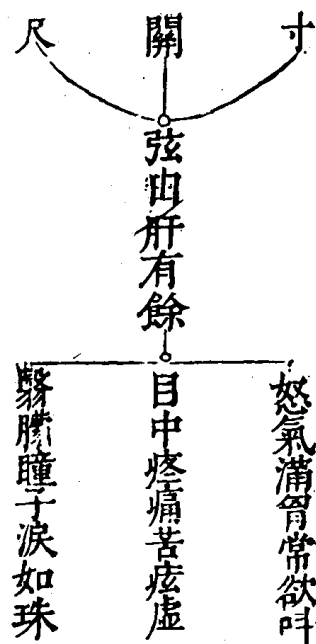 寸
關
尺
弦由肝有餘
怒氣滿胷常欲叫
目中疼痛苦痃虛
翳朦瞳子淚如珠